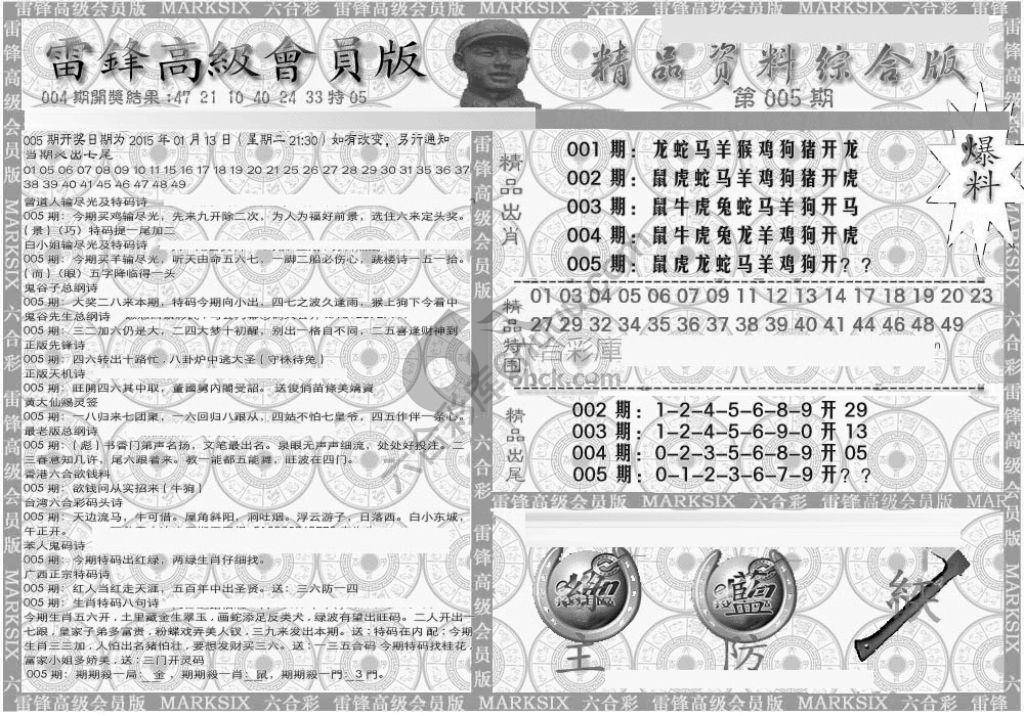 雷锋高级会员版 MARKSIX 六合彩 雷锋高级会员版 MARKSIX 六合彩 雷锋高级会员版 MARKSIX 六合彩 雷锋
雷鋒高級會員版
004期開獎結果:47 21 10 40 24 33特05
精品资料综合版
第005期
爆料
005期开奖日期为2015年01月13日(星期二21:30)如有改变,另行通知
当期必出七尾
01 05 06 07 08 09 10 11 15 16 17 18 19 20 25 26 27 28 29 30 31 35 36 37
38 39 40 41 45 46 47 48 49
曾道人输尽光及特码诗
005期:今期买鸡输尽光,先来九开除二次,为人为福好前景,选住六来定头奖。
{景}(巧)特码提一尾加二
白小姐输尽光及特码诗
005期:今期买羊输尽光,听天由命五六七,一脚二船必伤心,跳楼诗一五一拾。
{而}(眼)五字降临得一头
鬼谷子总纲诗
005期:大奖二八来本期,特码今期向小出,四七之波久逢雨,猴上狗下今看中
鬼谷先生总纲诗
005期:三二加六仍是大,二四大梦十初醒,别出一格自不同,二五喜逢财神到
正版先锋诗
005期:四六转出十路忙,八卦炉中逃大圣{守株待兔}
正版天机诗
005期:旺開四六其中取,董國舅內閣受詔。送俊俏苗條美嬌資
黄大仙赐灵签
005期:一八归来七团聚,一六回归八跟从,四姑不怕七皇爷,四五作伴一条心。
最老版总纲诗
005期:{彪}书香门第声名扬,文笔最出名。泉眼无声声细流,处处好投注。二
三春意知几许,尾六跟着来。教一能都五能舞,旺波在四门。
香港六合欲钱料
005期:欲钱问从实招来{牛狗}
台湾六合彩码头诗
005期:天边流马,牛可借。屋角斜阳,洞吐烟。浮云游子,日落西。白小东城,
午正开。
本人鬼码诗
005期:今期特码出红绿,两绿生肖仔细找。
广西正宗特码诗
005期:红人当红走天涯,五百年中出圣贤。送:三六防一四
005期:生肖特码八句诗
今期生肖五六开,土里藏金生翠玉,画蛇添足反类犬,绿波有望出旺码。二人开出一
七跟,皇家子弟多富贵,粉蝶戏弄美人钗,三九来发出本期。送:特码在内配:今期
生肖三三加,人怕出名猪怕壮,要想发财买三六。送:一三五合码 今期特码找桂花,
富家小姐多娇美,送:三门开灵码
005期:期期殺一局:金,期期殺一肖:鼠,期期殺一門:3門。
精品出肖
001期:龙蛇马羊猴鸡狗猪开龙
002期:鼠虎蛇马羊鸡狗猪开虎
003期:鼠牛虎兔蛇马羊狗开马
004期:鼠牛虎兔龙羊鸡狗开虎
005期:鼠虎龙蛇马羊鸡狗开??
精品特围
01 03 04 05 06 07 09 11 12 13 14 17 18 19 20 23
27 29 32 34 35 36 37 38 39 40 41 44 46 48 49
六合彩庫
6hck.com
精品出尾
002期:1-2-4-5-6-8-9开29
003期:1-2-4-5-6-8-9-0开13
004期:0-1-2-4-5-8-9开05
005期:0-1-2-3-6-7-9开??
雷锋高级会员版 MARKSIX 六合彩 雷锋高级会员版 MARK
主
藍
防
雷锋高级会员版 MARKSIX 六合彩 雷锋高级会员版 MARKSIX 六合彩 雷锋高级会员版 MARKSIX 六合彩 雷锋